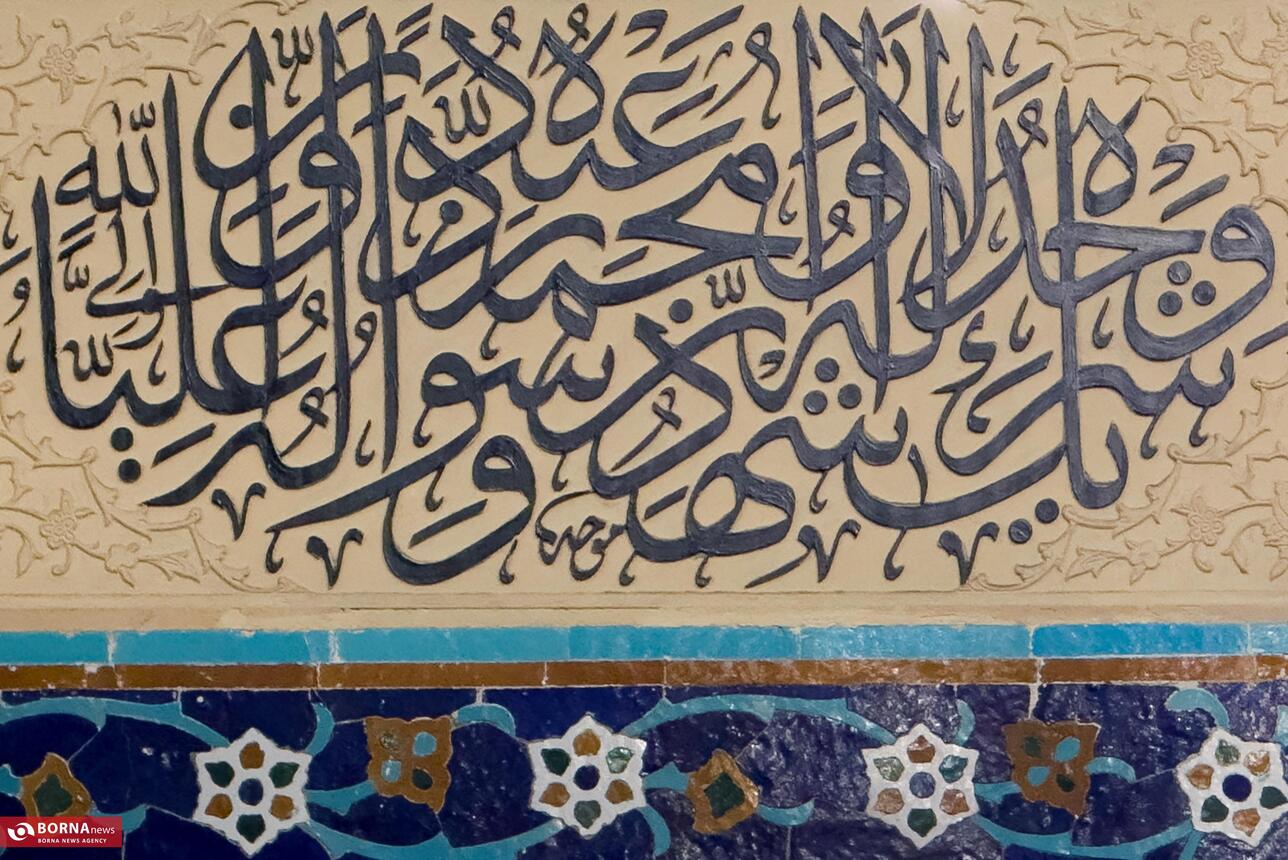 وحده لا شريك له و اشهد ان محمدا عبده و رسوله و ان عليا ولى الله
موحد
BORNA news
BORNA NEWS AGENCY